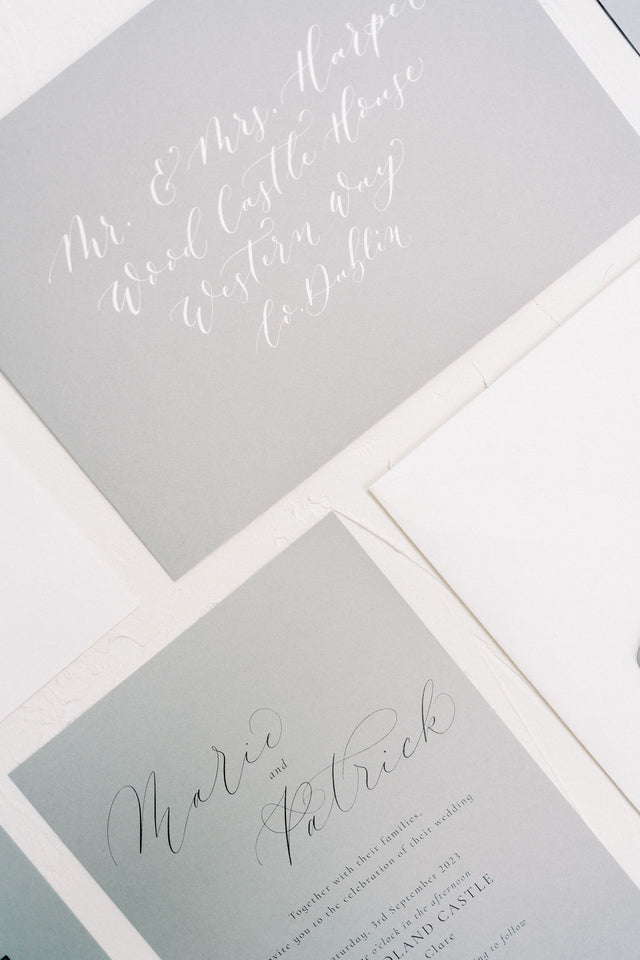 Mr. & Mrs. Harper
Wood Castle House
Western Way
Co. Dublin
Marie
and
Patrick
Together with their families,
invite you to the celebration of their wedding
Saturday, 3rd September 2023
o'clock in the afternoon
OLAND CASTLE
Clare
to follow